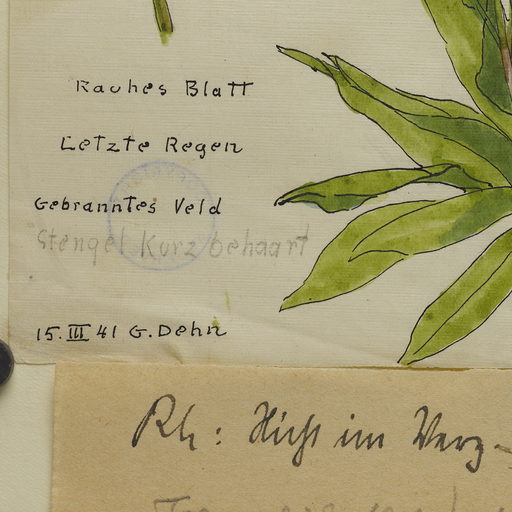 Rauhes Blatt
Letzte Regen
Gebranntes Veld
Stengel kurz behaart
15.III 41 G. Dehn
Rh: Nicht im Verz-